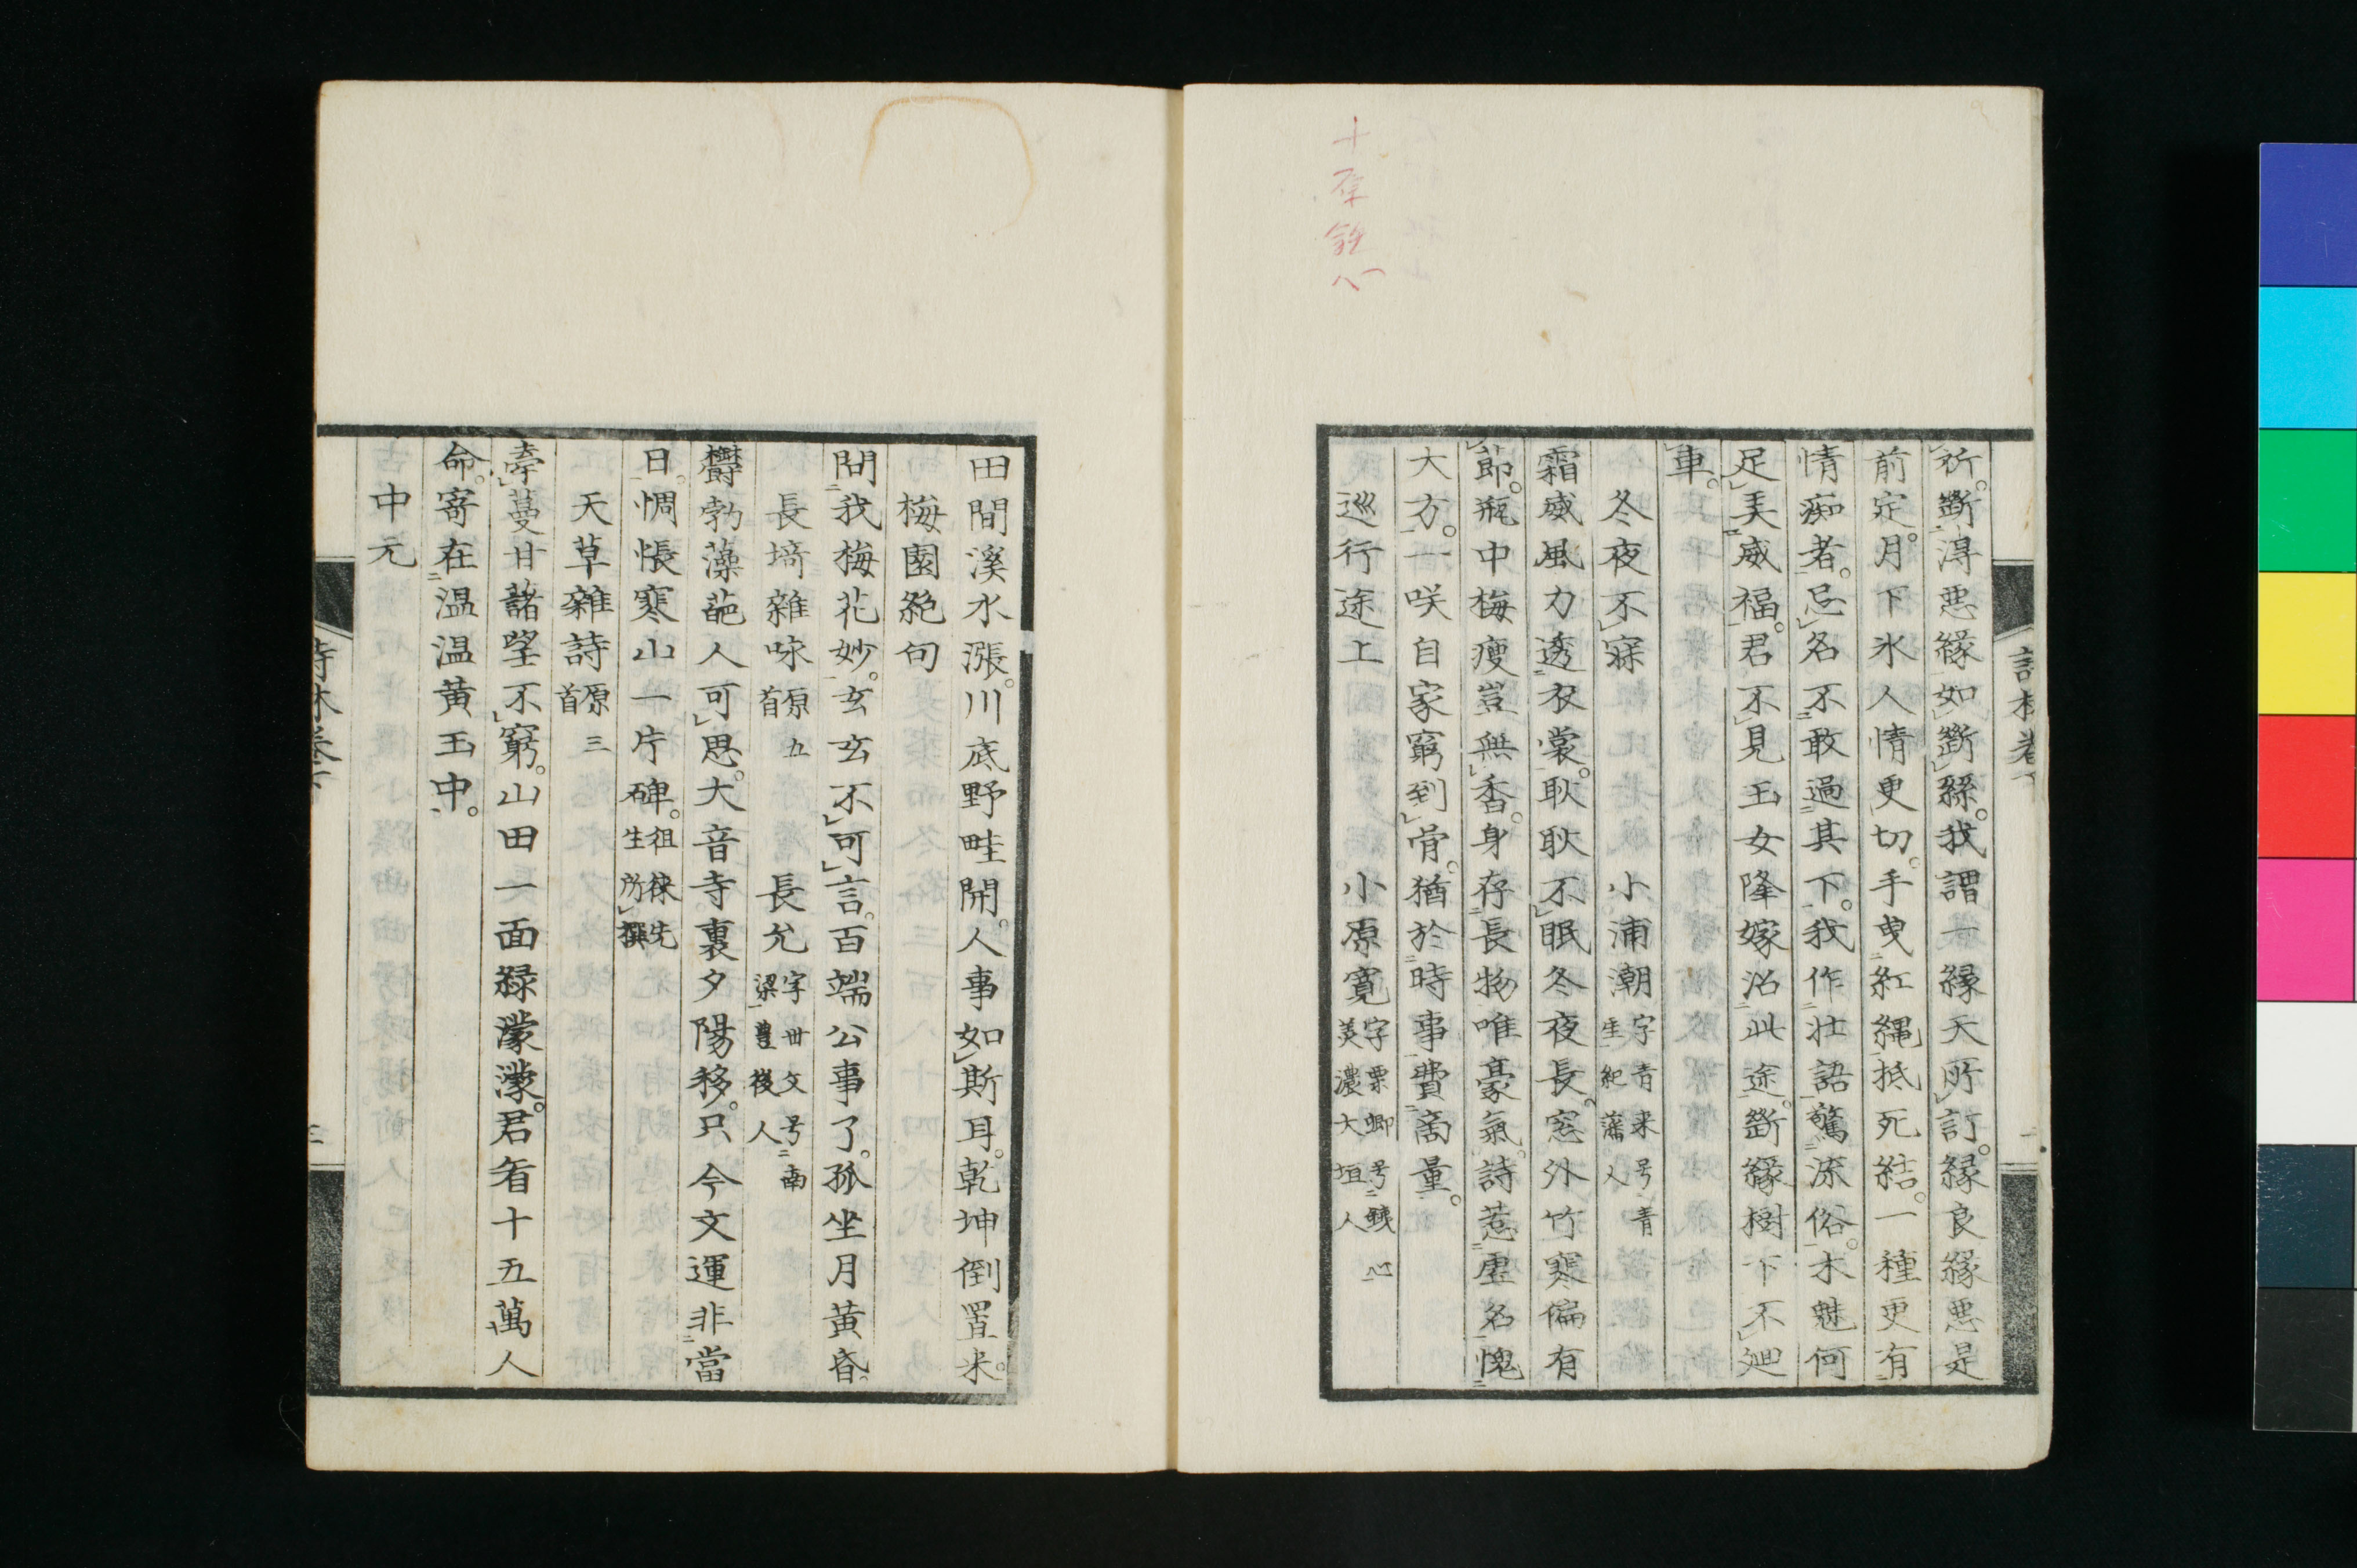 祈。斷得悪縁如斷絲。我謂一縁天所訂。縁良縁悪是
前定。月下氷人情更切。手曳紅繩抵死結。一種更有
情痴者。忌名不敢過其下。我作壮語驚流俗。木魅何
足美威福。君不見玉女降嫁沿此途。斷縁樹下不廻
車。
冬夜不寐
小浦潮 字青来号青
生紀藩人
霜威風力透衣裳。耿耿不眠冬夜長。窓外竹寒偏有
節。瓶中梅瘦豈無香。身存長物唯豪氣。詩惹虚名愧
大方。一咲自家窮到骨。猶於時事費商量。
巡行途上
小原寛 字栗卿号鉄心
美濃大垣人
田間溪水漲。川底野畦開。人事如斯耳。乾坤倒置来。
梅園絶句
問我梅花妙。玄玄不可言。百端公事了。孤坐月黄昏。
長埼雜咏 原五
首
長允 字世文号南
梁豊後人
欝勃藻葩人可思。大音寺裏夕陽移。只今文運非當
日。惆悵寒山一片碑。徂徠先
生所撰
天草雜詩 原三
首
牽蔓甘藷望不窮。山田一面緑濛濛。君看十五萬人
命。寄在温温黄玉中。
中元